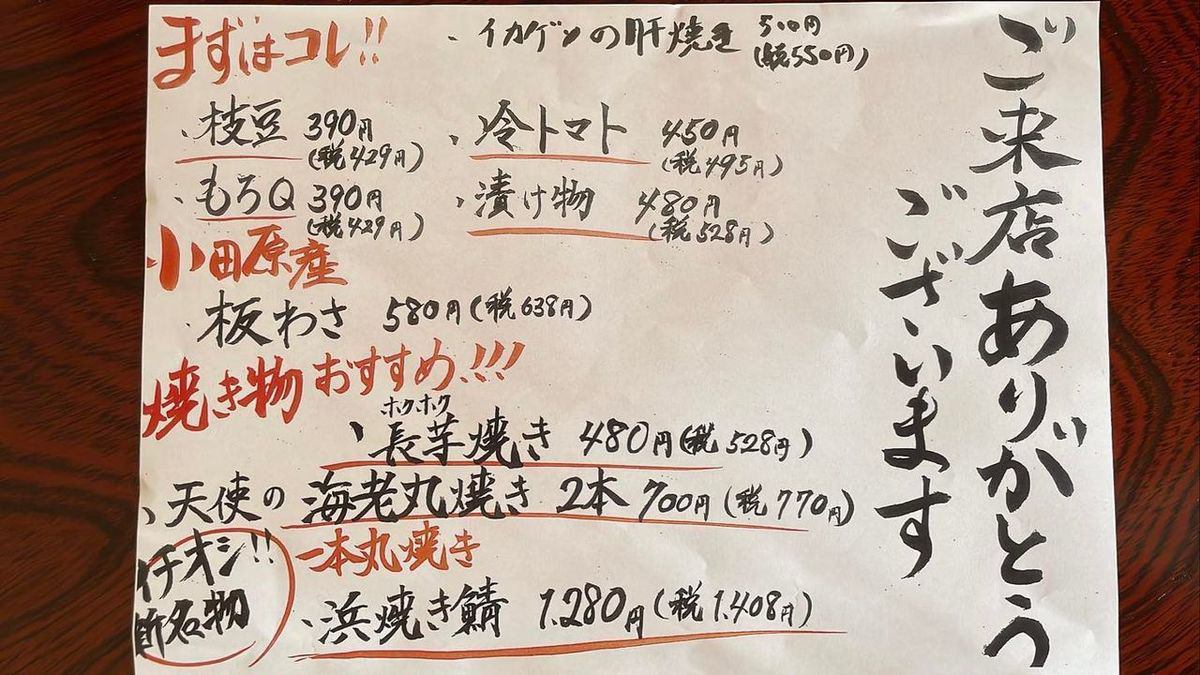 ご来店ありがとう
ございます
まずはコレ!!
・イカゲソの肝焼き 500円
(税550円)
・枝豆 390円
(税429円)
・冷トマト 450円
(税495円)
・もろQ 390円
(税429円)
・漬け物 480円
(税528円)
小田原産
・板わさ 580円(税638円)
焼き物おすすめ!!!
ホクホク
・長芋焼き 480円(税528円)
・天使の海老丸焼き 2本 700円(税770円)
イチオシ!!
新名物
一本丸焼き
・浜焼き鯖 1.280円(税1.408円)